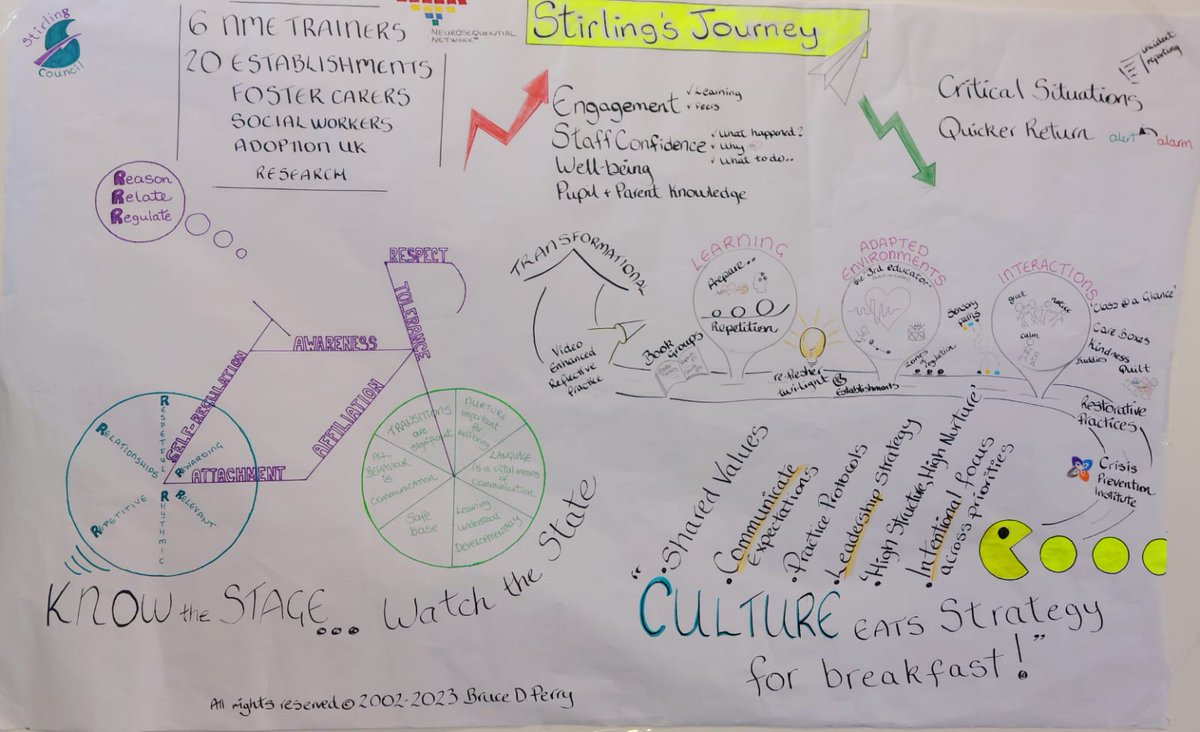 Stirling
Council
6 NME TRAINERS
20 ESTABLISHMENTS
FOSTER CARERS
SOCIAL WORKERS
ADOPTION UK
RESEARCH
NEUROSEQUENTIAL
NETWORK
Stirling's Journey
Engagement
✓Learning
✓Peers
Staff Confidence
✓What happened?
✓Why
✓What to do..
Well-being
Pupil + Parent Knowledge
incident
reporting
Critical Situations
Quicker Return
alert
alarm
Reason
Relate
Regulate
RESPECT
TOLERANCE
AWARENESS
SELF-REGULATION
AFFILIATION
ATTACHMENT
RESPETFUL
REWARDING
RELEVANT
RHYTHMIC
REPETITIVE
RELATIONSHIPS
TRANSITIONS
are
significant
NURTURE
important
for
wellbeing
LANGUAGE
is a vital means
of
communication
Learning
understood
DEVELOPMENTALLY
Safe
base
ALL
BEHAVIOUR
is
communication
KNOW the STAGE... Watch the State
All rights reserved © 2002-2023 Bruce D Perry
TRANSFORMATIONAL
Video
Enhanced
Reflective
Practice
Book
Groups
LEARNING
Prepare..
Repetition
refresher
twilight
Establishments
ADAPTED
ENVIRONMENTS
the 3rd educator..
Zones of regulation
Sensory
INTERACTIONS
Calm
'Class @ a Glance'
Care Boxes
Kindness
Buddies
Quilt
Restorative
Practices
Crisis
Prevention
Institute
• Shared Values
• Communicate
Expectations
• Practice Protocols
• Leadership Strategy
• "High Structure, High Nurture"
• Intentional focus
across priorities
"CULTURE EATS Strategy
for breakfast!"